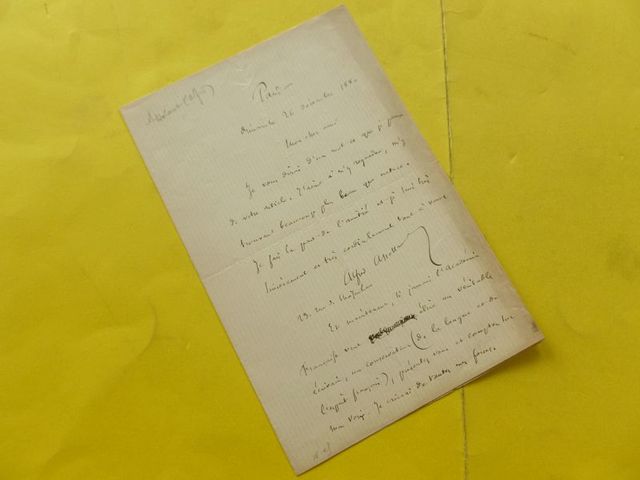 Assolant (Alfred)
Paris
Dimanche 26 décembre 1880
Mon cher ami
Je vous dirai d'un mot ce que je pense
de votre article. J'aime à m'y regarder, m'y
trouvant beaucoup plus beau que nature.
Je fais la part de l'amitié et je suis très
sincèrement et très cordialement tout à vous
Alfred Assollant
19, rue de
Et maintenant, si jamais l'Académie
française veut élire un véritable
écrivain, un conservateur (de la langue et de
l'esprit français), présentez-vous et comptez sur
ma voix. Je crierai de toutes mes forces.